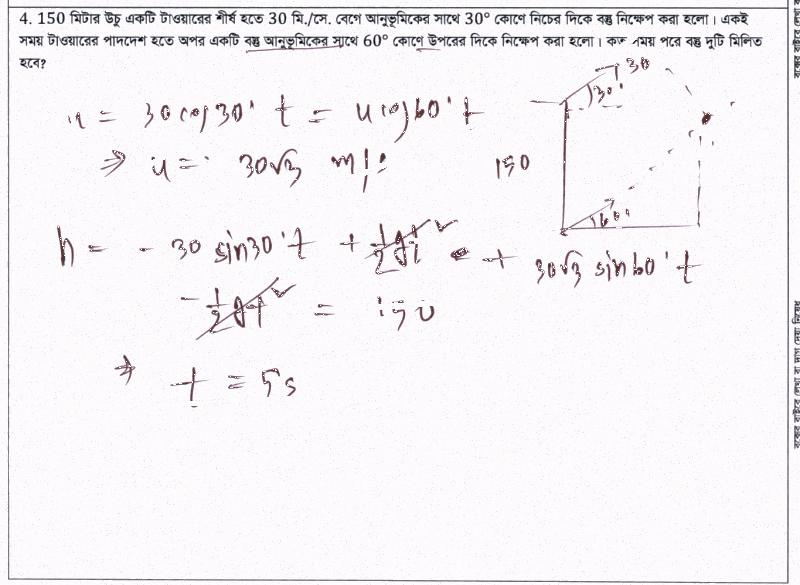 4. 150 মিটার উচু একটি টাওয়ারের শীর্ষ হতে 30 মি./সে. বেগে আনুভূমিকের সাথে 30° কোণে নিচের দিকে বস্তু নিক্ষেপ করা হলো। একই
সময় টাওয়ারের পাদদেশ হতে অপর একটি বস্তু আনুভূমিকের সাথে 60° কোণে উপরের দিকে নিক্ষেপ করা হলো। কত সময় পরে বস্তু দুটি মিলিত
হবে?
30
30°
u = 30 cos 30° t = u cos 60° t
⇒ u = 30√3 m/s
150
60°
h = - 30 sin 30° t + ½gt² + 30√3 sin 60° t
- ½gt² = 150
⇒ t = 5s